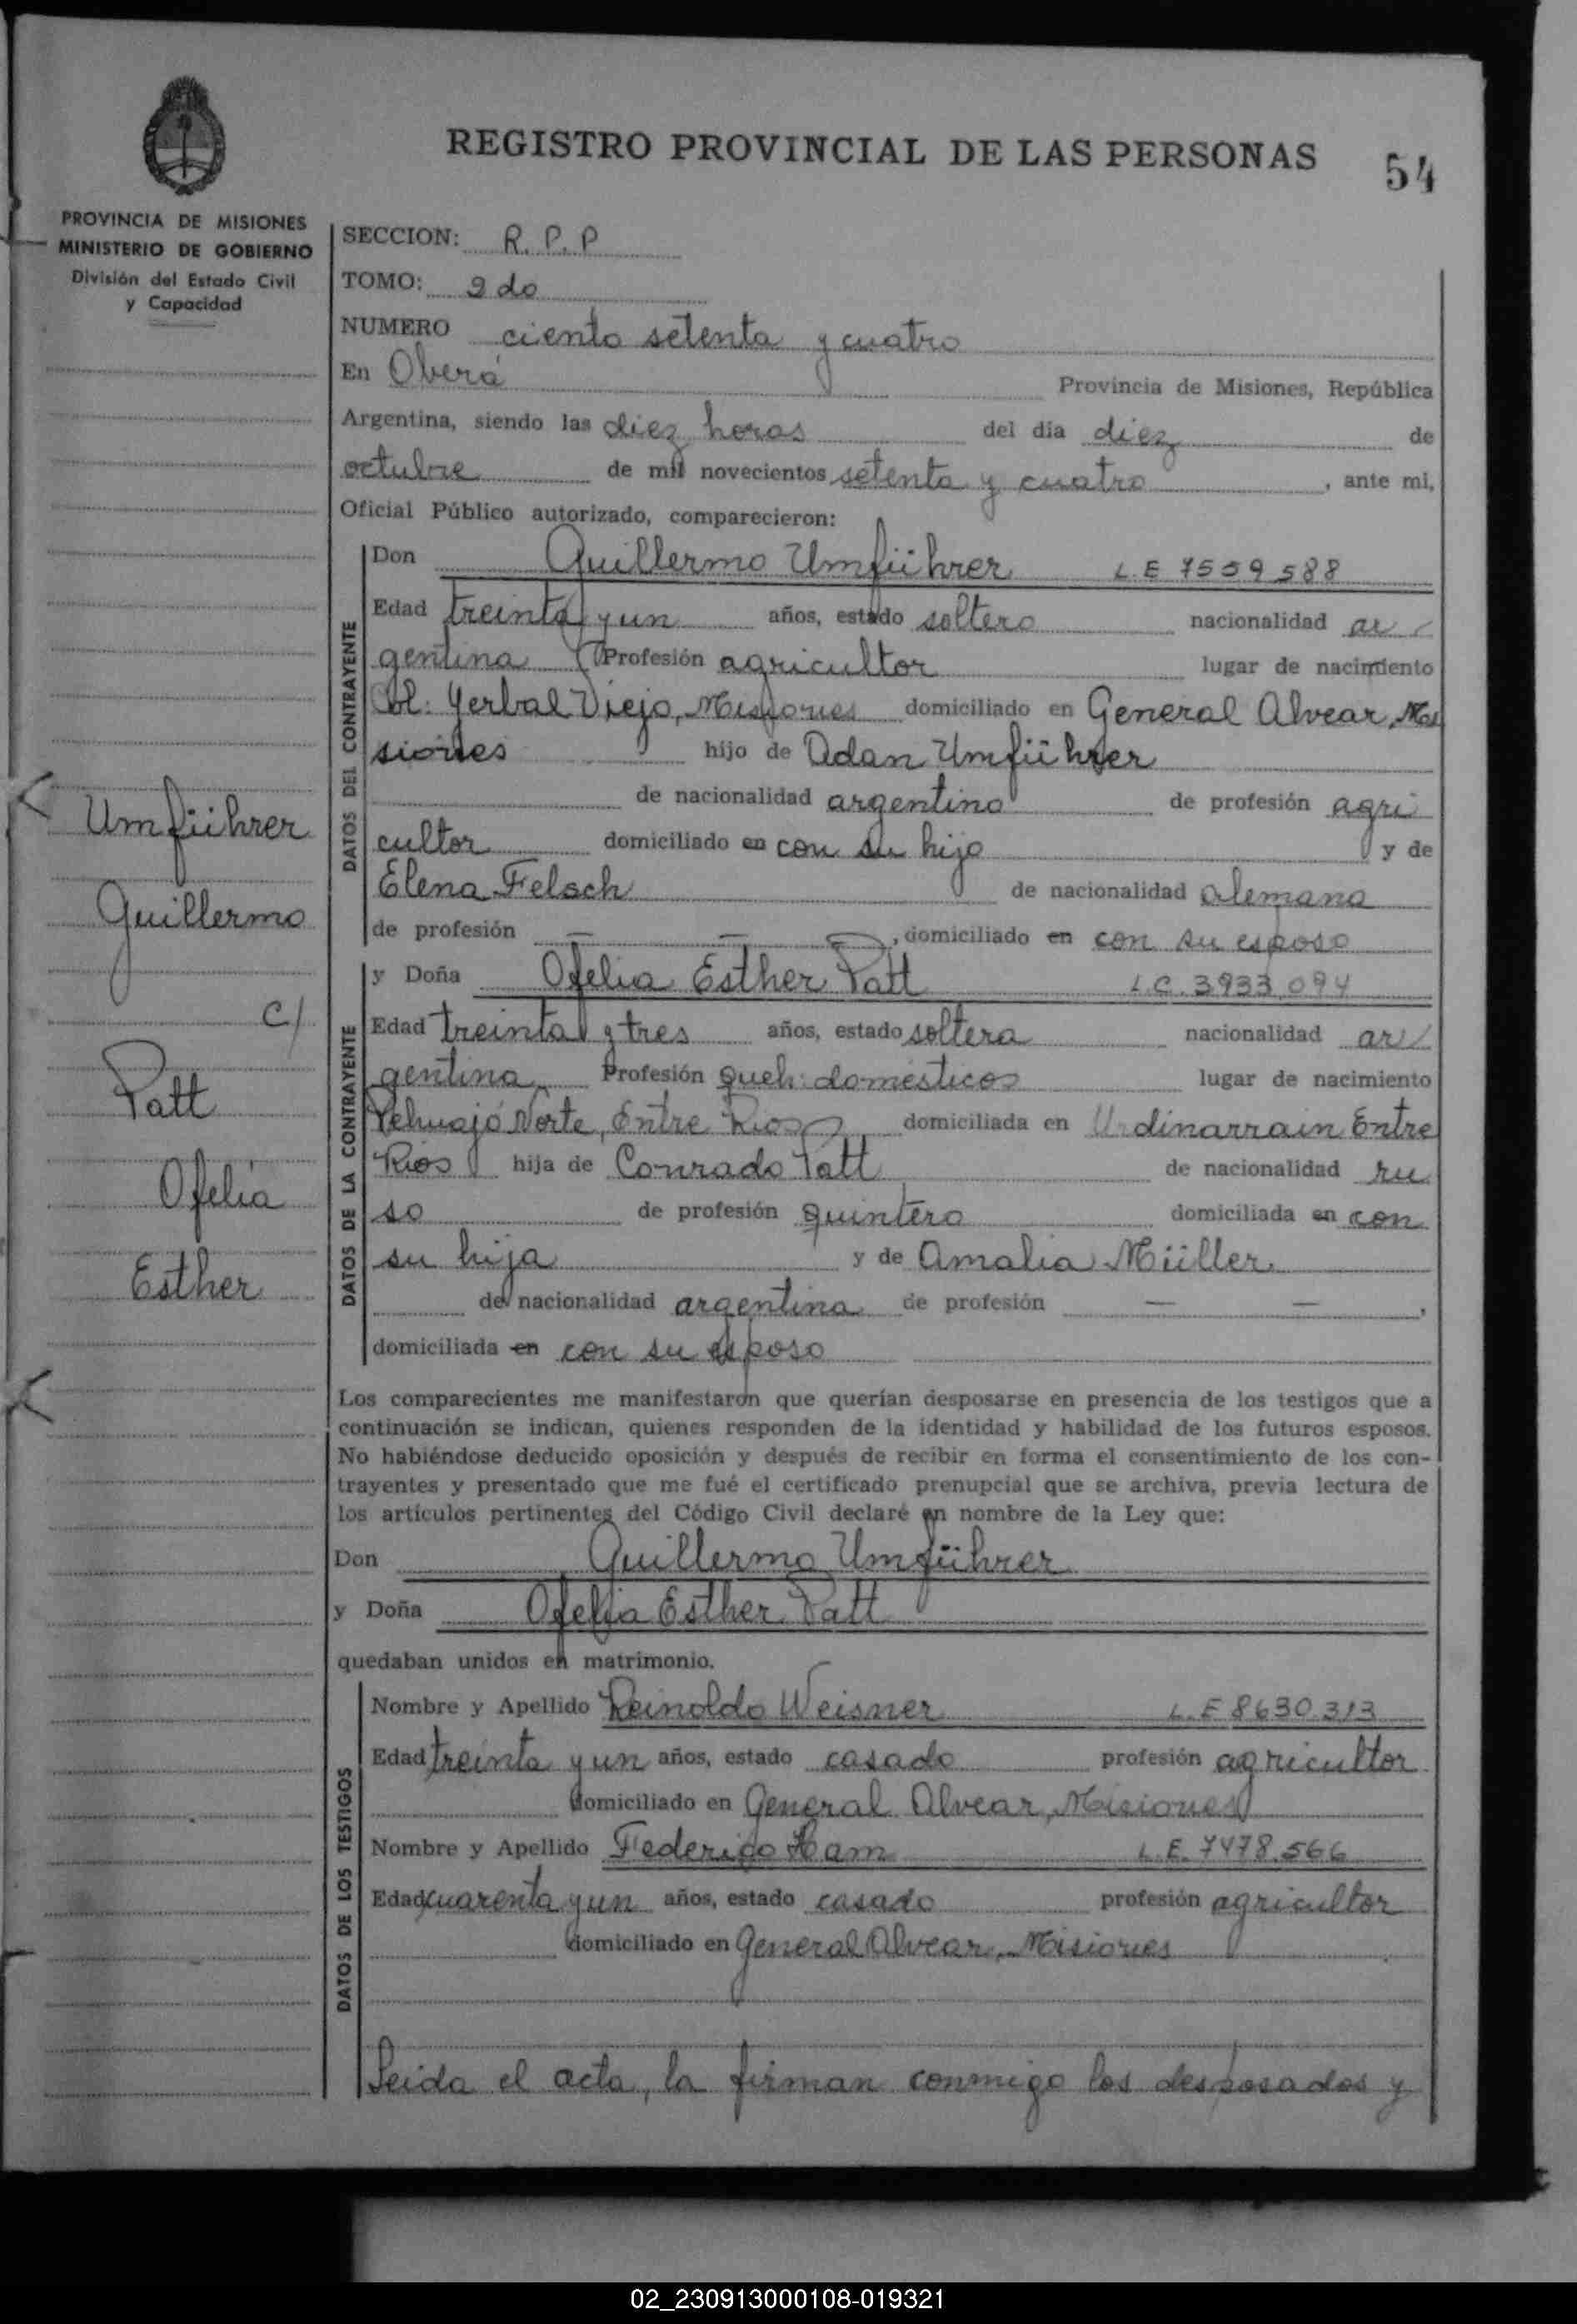 REGISTRO PROVINCIAL DE LAS PERSONAS 54
PROVINCIA DE MISIONES
MINISTERIO DE GOBIERNO
División del Estado Civil
y Capacidad
SECCION: R. P. P
TOMO: 2do
NUMERO ciento setenta y cuatro
En Oberá Provincia de Misiones, República
Argentina, siendo las diez horas del día diez de
octubre de mil novecientos setenta y cuatro, ante mi,
Oficial Público autorizado, comparecieron:
DATOS DEL CONTRAYENTE
Don Guillermo Umführer L.E 7559588
Edad treinta y un años, estado soltero nacionalidad ar
gentina Profesión agricultor lugar de nacimiento
Col. Yerbal Viejo, Misiones domiciliado en General Alvear, Mi
siones hijo de Adan Umführer
de nacionalidad argentino de profesión agri
cultor domiciliado en con su hijo y de
Elena Felsch de nacionalidad alemana
de profesión — — , domiciliado en con su esposo
DATOS DE LA CONTRAYENTE
y Doña Ofelia Esther Patt L.C. 3933.094
Edad treinta y tres años, estado soltera nacionalidad ar
gentina Profesión queh. domésticos lugar de nacimiento
Pehuajó Norte, Entre Rios domiciliada en Urdinarrain Entre
Rios hija de Conrado Patt de nacionalidad ru
so de profesión quintero domiciliada en con
su hija y de Amalia Müller
de nacionalidad argentina de profesión — — ,
domiciliada en con su esposo
Los comparecientes me manifestaron que querían desposarse en presencia de los testigos que a
continuación se indican, quienes responden de la identidad y habilidad de los futuros esposos.
No habiéndose deducido oposición y después de recibir en forma el consentimiento de los con-
trayentes y presentado que me fué el certificado prenupcial que se archiva, previa lectura de
los artículos pertinentes del Código Civil declaré en nombre de la Ley que:
Don Guillermo Umführer
y Doña Ofelia Esther Patt
quedaban unidos en matrimonio.
DATOS DE LOS TESTIGOS
Nombre y Apellido Reinoldo Weisner L.E 8630.313
Edad treinta y un años, estado casado profesión agricultor
domiciliado en General Alvear, Misiones
Nombre y Apellido Federico Ham L.E. 7478.566
Edad cuarenta y un años, estado casado profesión agricultor
domiciliado en General Alvear, Misiones
Leida el acta, la firman conmigo los desposados y
Umführer
Guillermo
c/
Patt
Ofelia
Esther
02_230913000108-019321